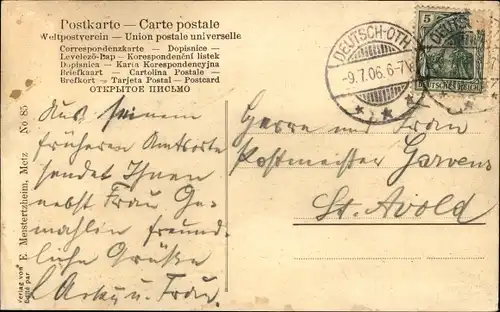 Postkarte — Carte postale
Weltpostverein — Union postale universelle
Correspondenzkarte — Dopisnice —
Levelező-Lap — Korespondenční listek
Dopisnica — Karta Korespondencyjna
Briefkaart — Cartolina Postale —
Brefkort — Tarjeta Postal — Postcard
ОТКРЫТОЕ ПИСЬМО
DEUTSCH-OTH
-9.7.06. 6-7
5
DEUTSCHES REICH
Aus seinem
früheren Amtsorte
sendet Ihnen
nebst Frau Ge-
mahlin freund-
liche Grüße
u. Frau.
Herrn und Frau
Postmeister Garvens
St. Avold
Verlag von E. Menstertzheim, Metz No 85
Edité par